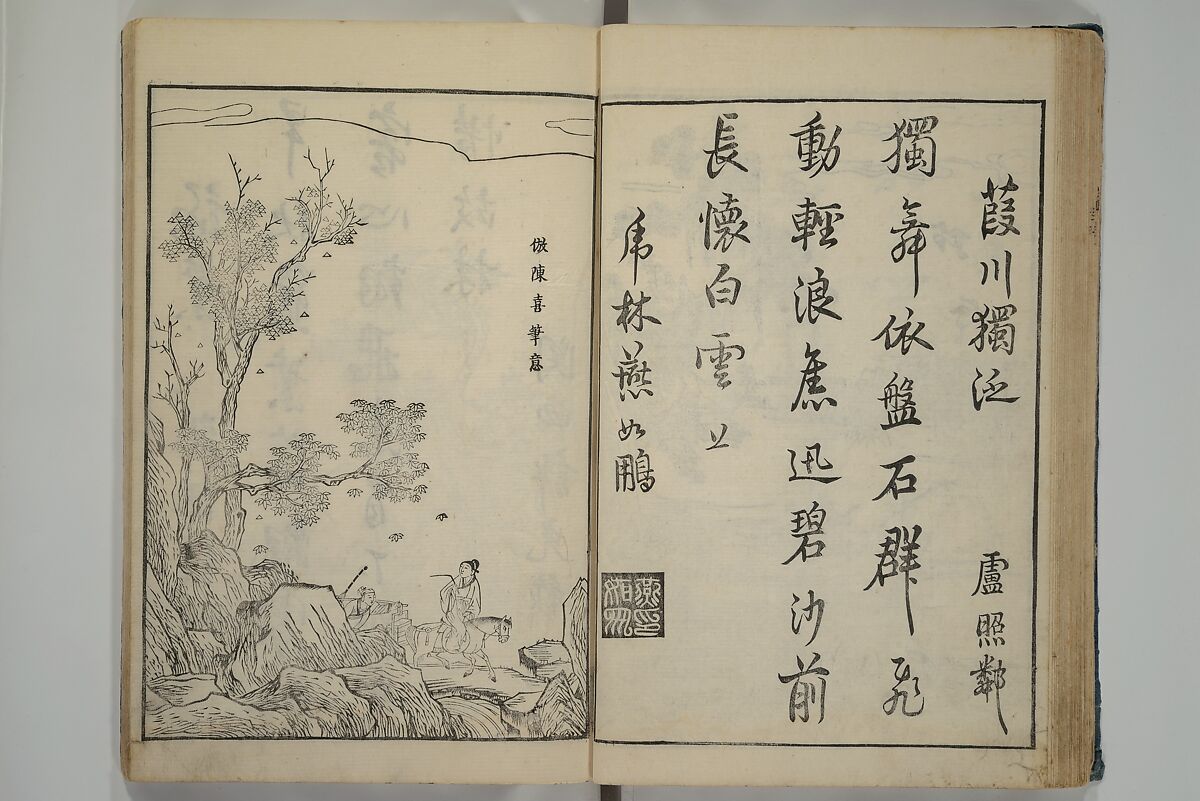 葭川獨泛
盧照鄰
獨舞依盤石群飛
動輕浪奮迅碧沙前
長懷白雲上
虎林燕如鵬
倣陳喜筆意